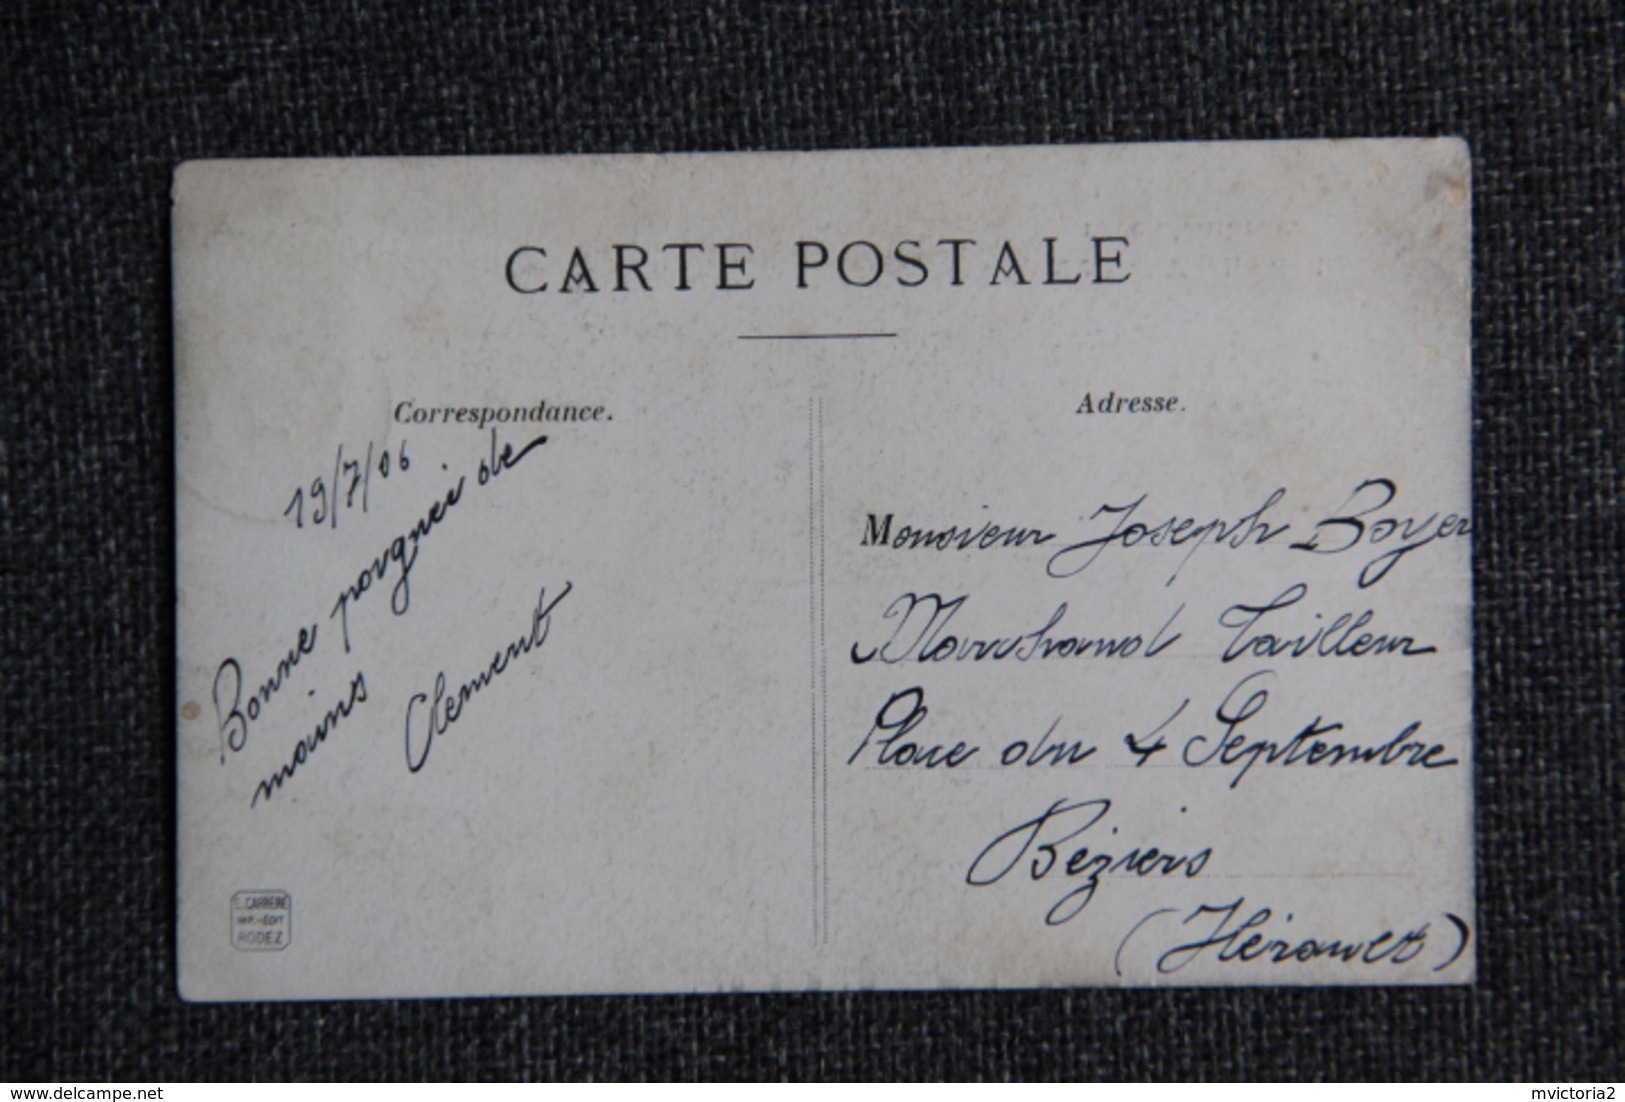 CARTE POSTALE
Correspondance.
19/7/06
Bonne poignée de
mains
Clement
E. CARRÈRE
IMP.-ÉDIT
RODEZ
Adresse.
Monsieur Joseph Boyer
Marchand Tailleur
Place du 4 Septembre
Béziers
(Hérault)
delcampe.net
mvictoria2